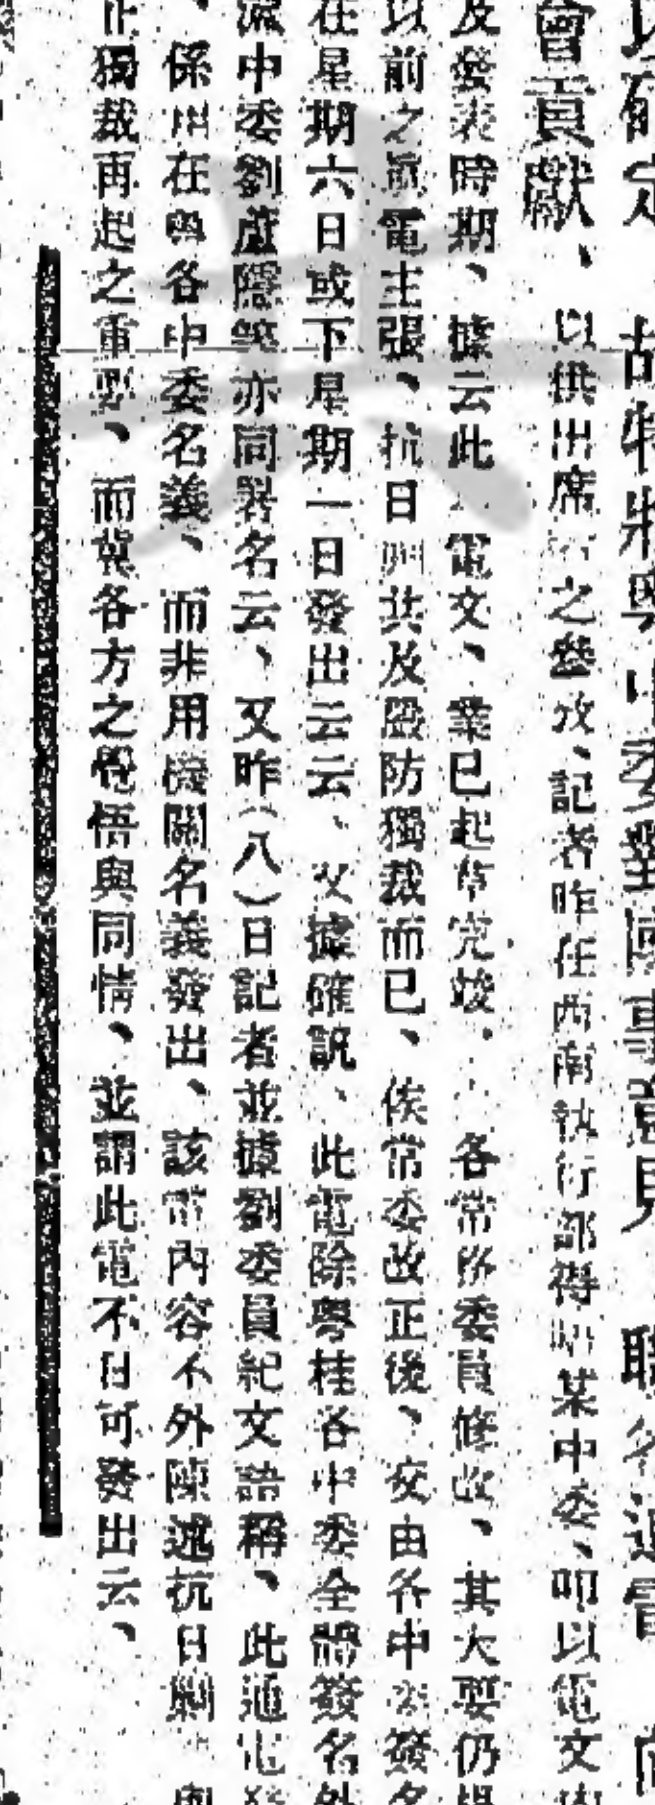 以確定、故特將粵中委對國事意見、聯名通電、向
會貢獻、以供出席者之參攷、記者昨在西南執行部得晤某中委、叩以電文內
及發表時期、據云此電文、業已起草完竣、各常務委員修改、其大要仍
以前之電主張、抗日剿共及嚴防獨裁而已、俟常委改正後、交由各中委簽名
在星期六日或下星期一日發出云云、又據確訊、此電除粵桂各中委全體簽名外
中委劉蘆隱等亦同署名云、又昨（八）日記者並據劉委員紀文語稱、此通電發
、係用在粵各中委名義、而非用機關名義發出、該電內容不外陳述抗日剿
止獨裁再起之重要、而冀各方之覺悟與同情、並謂此電不日可發出云、
共